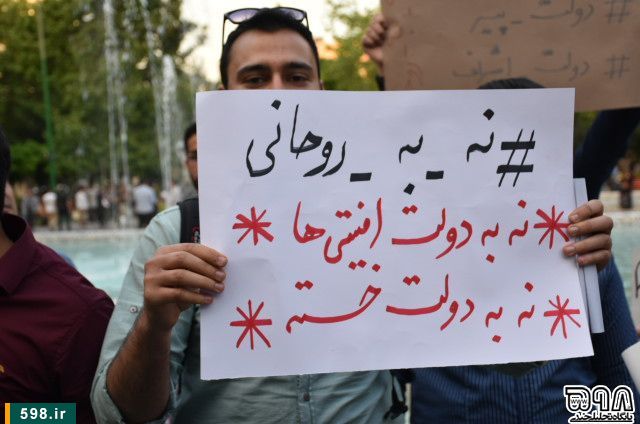 #دولت_پیر
#دولت
#نه_به_روحانی
* نه به دولت امنیتی ها *
* نه به دولت خسته *
598.ir
۵۹۸